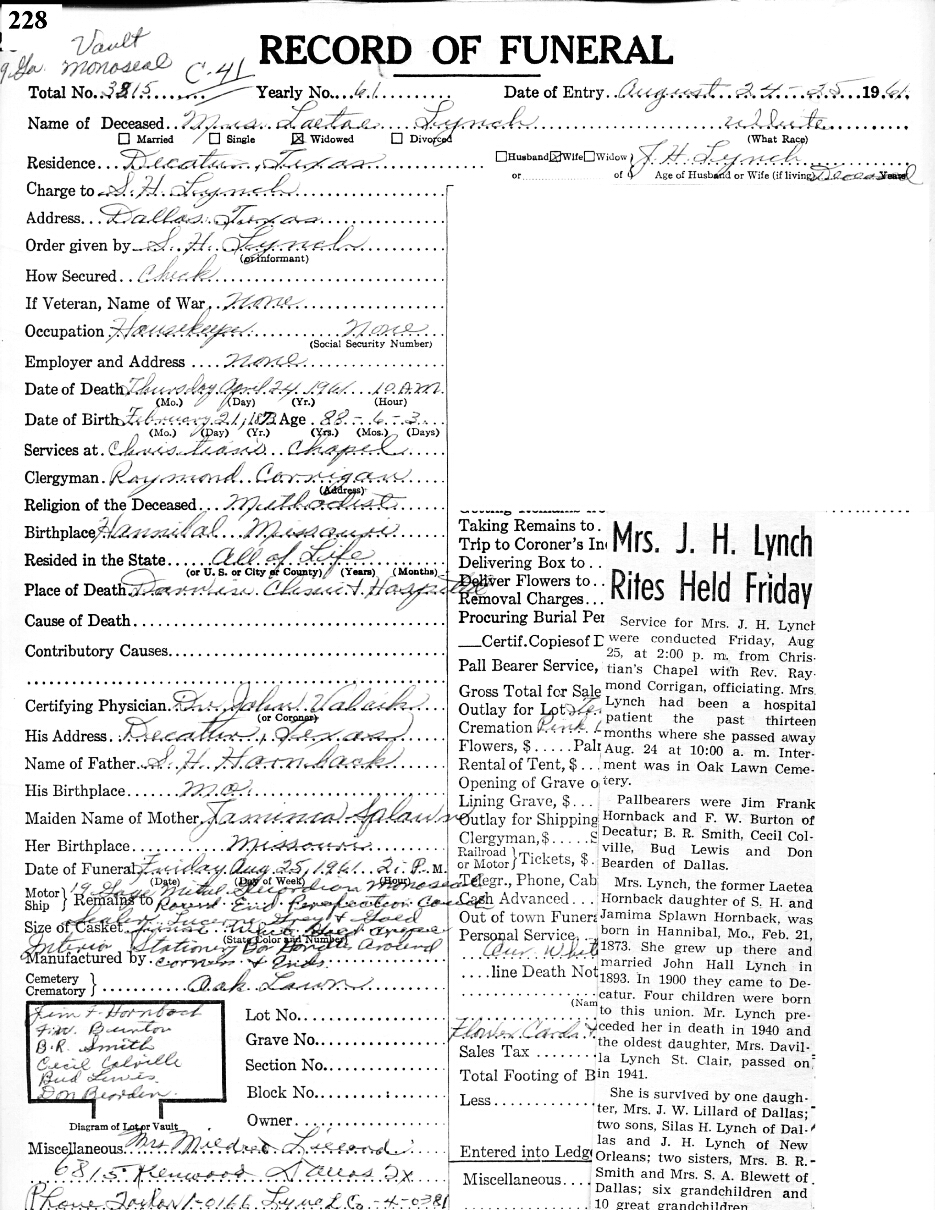 228
Vault
19 Ga Monoseal C-41
RECORD OF FUNERAL
Total No. 3815 Yearly No. 61 Date of Entry August 24-25 1961
Name of Deceased Mrs. Laetae Lynch White
Married Single ☒ Widowed Divorced (What Race)
Residence Decatur, Texas Husband ☒ Wife Widow } J. H. Lynch
or of Age of Husband or Wife (if living) Deceased Years
Charge to S. H. Lynch
Address Dallas Texas
Order given by S. H. Lynch
(or informant)
How Secured Check
If Veteran, Name of War None
Occupation Housekeeper None
(Social Security Number)
Employer and Address None
Date of Death Thursday April 24, 1961 10 A.M.
(Mo.) (Day) (Yr.) (Hour)
Date of Birth February 21, 1873 Age 88-6-3
(Mo.) (Day) (Yr.) (Yrs.) (Mos.) (Days)
Services at Christians Chapel
Clergyman Raymond Corrigan
(Address)
Religion of the Deceased Methodist
Birthplace Hannibal Missouri
Resided in the State All of Life
(or U. S. or City or County) (Years) (Months)
Place of Death Clinic & Hospital
Cause of Death
Contributory Causes
Certifying Physician Dr. John
(or Coroner)
His Address Decatur, Texas
Name of Father S. H. Hornback
His Birthplace Mo
Maiden Name of Mother Jamima Splawn
Her Birthplace Missouri
Date of Funeral Friday Aug 25, 1961 2: P.M.
(Date) (Day of Week) (Hour)
Motor Ship } Remains to 19 Gage Metal Monoseal
Round End
Size of Casket Grey & Gold
(State Color and Number)
Interior Stationary Around
Manufactured by corners & Ends
Cemetery Crematory } Oak Lawn
Jim F Hornback
F.W. Burton
B.R. Smith
Cecil Colville
Bud Lewis
Don Bearden
Diagram of Lot or Vault
Lot No.
Grave No.
Section No.
Block No.
Owner
Miscellaneous Mrs Mildred Lillard
6815 Kenwood Dallas Tx
Phone Taylor 1-0166 Lynch Co -4-0381
Taking Remains to
Trip to Coroner's In
Delivering Box to
Deliver Flowers to
Removal Charges
Procuring Burial Per
Certif. Copies of D
Pall Bearer Service,
Gross Total for Sale
Outlay for Lot
Cremation Pink
Flowers, $ Palr
Rental of Tent, $
Opening of Grave o
Lining Grave, $
Outlay for Shipping
Clergyman, $ S
Railroad or Motor } Tickets, $
Telegr., Phone, Cab
Cash Advanced
Out of town Funera
Personal Service,
line Death Not
(Nam
Flower Cards
Sales Tax
Total Footing of B
Less
Entered into Ledge
Miscellaneous
Mrs. J. H. Lynch
Rites Held Friday
Service for Mrs. J. H. Lynch
were conducted Friday, Aug
25, at 2:00 p. m. from Chris-
tian's Chapel with Rev. Ray-
mond Corrigan, officiating. Mrs.
Lynch had been a hospital
patient the past thirteen
months where she passed away
Aug. 24 at 10:00 a. m. Inter-
ment was in Oak Lawn Ceme-
tery.
Pallbearers were Jim Frank
Hornback and F. W. Burton of
Decatur; B. R. Smith, Cecil Col-
ville, Bud Lewis and Don
Bearden of Dallas.
Mrs. Lynch, the former Laetea
Hornback daughter of S. H. and
Jamima Splawn Hornback, was
born in Hannibal, Mo., Feb. 21,
1873. She grew up there and
married John Hall Lynch in
1893. In 1900 they came to De-
catur. Four children were born
to this union. Mr. Lynch pre-
ceded her in death in 1940 and
the oldest daughter, Mrs. Davil-
la Lynch St. Clair, passed on
in 1941.
She is survived by one daugh-
ter, Mrs. J. W. Lillard of Dallas;
two sons, Silas H. Lynch of Dal-
las and J. H. Lynch of New
Orleans; two sisters, Mrs. B. R.
Smith and Mrs. S. A. Blewett of
Dallas; six grandchildren and
10 great grandchildren